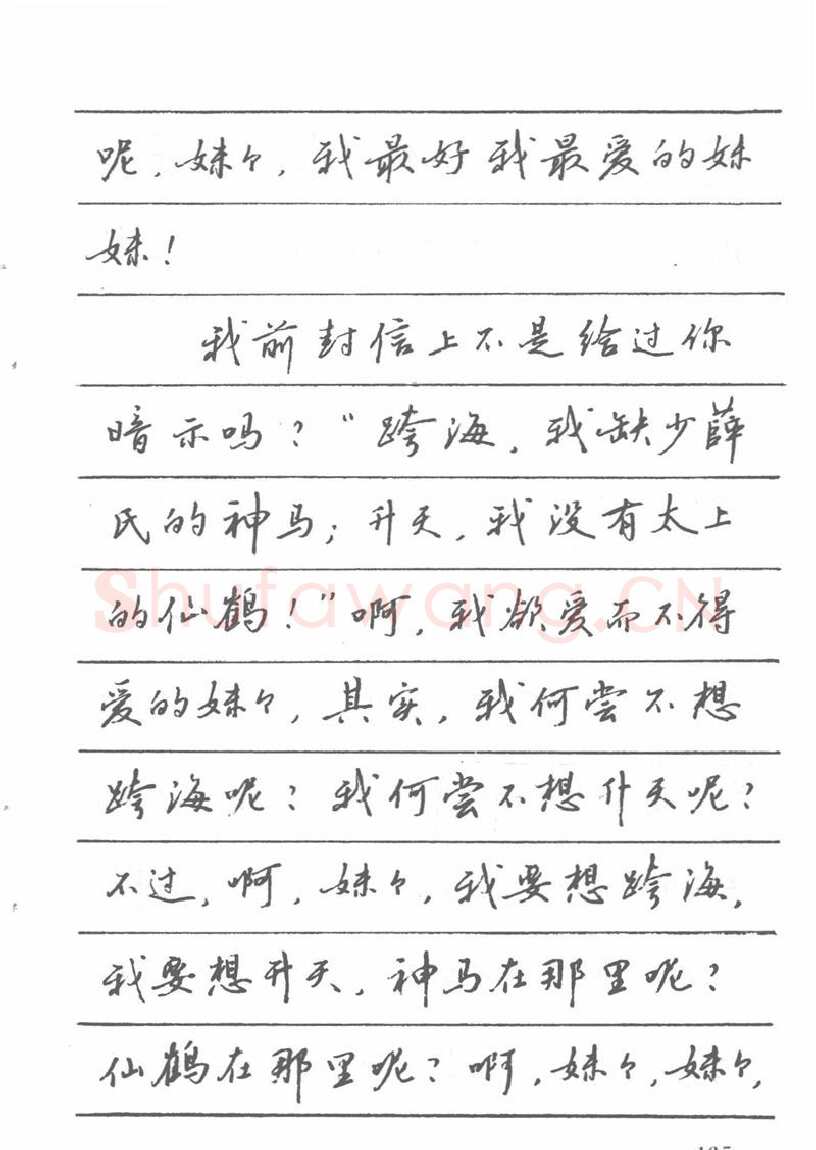 呢，妹々，我最好我最爱的妹
妹！
我前封信上不是给过你
暗示吗？“跨海，我缺少薛
氏的神马；升天，我没有太上
的仙鹤！”啊，我欲爱而不得
爱的妹々，其实，我何尝不想
跨海呢？我何尝不想升天呢？
不过，啊，妹々，我要想跨海，
我要想升天，神马在那里呢？
仙鹤在那里呢？啊，妹々，妹々，
Shufawang.CN